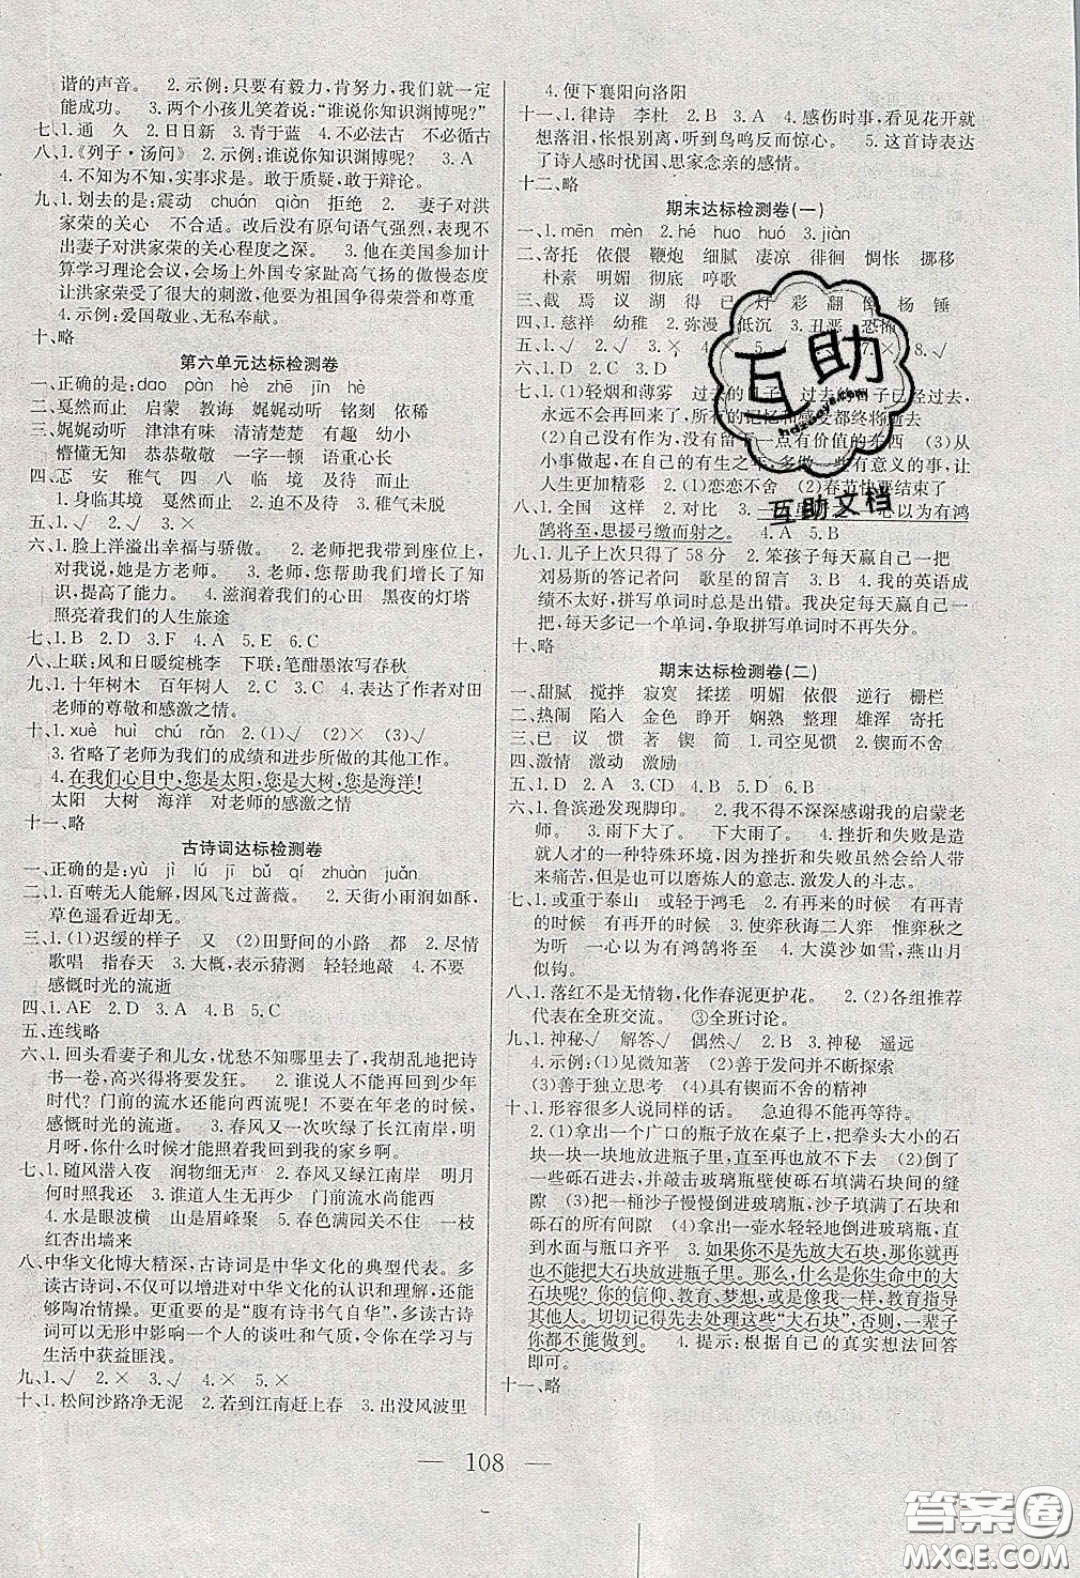 谐的声音。 2.示例:只要有毅力,肯努力,我们就一定
能成功。 3.两个小孩儿笑着说:“谁说你知识渊博呢?”
七、1.通 久 2.日日新 3.青于蓝 4.不必法古 不必循古
八、1.《列子·汤问》 2.示例:谁说你知识渊博呢? 3.A
4.不知为不知,实事求是。敢于质疑,敢于辩论。
九、1.划去的是:震动 chuán qiàn 拒绝 2. 妻子对洪
家荣的关心 不合适。改后没有原句语气强烈,表现不
出妻子对洪家荣的关心程度之深。 3.他在美国参加计
算学习理论会议,会场上外国专家趾高气扬的傲慢态度
让洪家荣受了很大的刺激,他要为祖国争得荣誉和尊重
4.示例:爱国敬业、无私奉献。
十、略
第六单元达标检测卷
一、正确的是:dao pàn hè zhē jīn hè
二、戛然而止 启蒙 教诲 娓娓动听 铭刻 依稀
三、娓娓动听 津津有味 清清楚楚 有趣 幼小
懵懂无知 恭恭敬敬 一字一顿 语重心长
四、忐 安 稚气 四 八 临 境 及待 而止
1.身临其境 戛然而止 2.迫不及待 3.稚气未脱
五、1.√ 2.√ 3.×
六、1.脸上洋溢出幸福与骄傲。 2.老师把他带到座位上,
对我说,她是方老师。 3.老师,您帮助我们增长了知
识,提高了能力。 4.滋润着我们的心田 黑夜的灯塔
照亮着我们的人生旅途
七、1.B 2.D 3.F 4.A 5.E 6.C
八、上联:风和日暖绽桃李 下联:笔酣墨浓写春秋
九、1.十年树木 百年树人 2.C 3.C 4.表达了作者对田
老师的尊敬和感激之情。
十、1.xuè huì chú rǎn 2.(1)√ (2)× (3)√
3.省略了老师为我们的成绩和进步所做的其他工作。
4.在我们心目中,您是太阳,您是大树,您是海洋!
太阳 大树 海洋 对老师的感激之情
十一、略
古诗词达标检测卷
一、正确的是:yù jì lú jī bǔ qí zhuàn juǎn
二、1.百啭无人能解,因风飞过蔷薇。 2.天街小雨润如酥,
草色遥看近却无。
三、1.(1)迟缓的样子 又 (2)田野间的小路 都 2.尽情
歌唱 指春天 3.大概,表示猜测 轻轻地敲 4.不要
感慨时光的流逝
四、1.AE 2.D 3.A 4.B 5.C
五、连线略
六、1.回头看妻子和儿女,忧愁不知哪里去了,我胡乱地把诗
书一卷,高兴得将要发狂。 2.谁说人不能再回到少年
时代? 门前的流水还能向西流呢! 不要在年老的时候,
感慨时光的流逝。 3.春风又一次吹绿了长江南岸,
明月呀,你什么时候才能照着我回到我的家乡啊?
七、1.随风潜入夜 润物细无声 2.春风又绿江南岸 明月
何时照我还 3.谁道人生无再少 门前流水尚能西
4.水是眼波横 山是眉峰聚 5.春色满园关不住 一枝
红杏出墙来
八、中华文化博大精深,古诗词是中华文化的典型代表。多
读古诗词,不仅可以增进对中华文化的认识和理解,还
能够陶冶情操。更重要的是“腹有诗书气自华”,多读古诗
词可以无形中影响一个人的谈吐和气质,令你在学习与
生活中获益匪浅。
九、1.√ 2.√ 3.× 4.√ 5.× 6.×
十、1.松间沙路净无泥 2.若到江南赶上春 3.出没风波里
4.便下襄阳向洛阳
十一、1.律诗 李杜 2.B 3.A 4.感伤时事,看见花开就
想落泪,怅恨别离,听到鸟鸣反而惊心。 5.这首诗表达
了诗人感时忧国、思家念亲的感情。
十二、略
期末达标检测卷(一)
一、1.mēn mèn 2.hé huo huó 3.jiàn
二、寄托 依偎 鞭炮 细腻 凄凉 徘徊 惆怅 挪移
朴素 明媚 彻底 哼歌
三、截 焉 议 湖 得 已 灯 彩 翻 倒 杨 锤
四、1.慈祥 幼稚 2.弥漫 低沉 3.丑恶 恐
五、1.√ 2.× 3.√ 4.× 7.× 8.√
六、1.D 2.C 3.D
七、1.(1)轻烟和薄雾 过去的日子 过去的日子如
永远不再回来了,所有的记忆和感受都终将逝去
(2)自己没有作为,没有留下一点有价值的东西 (3)从
小事做起,在自己的有生之年,多做一些有意义的事,让
人生更精彩 2.(1)恋恋不舍 (2)春节快要结束了
八、1.全国 这样 2.对比 3.一 心以为有鸿
鹄将至,思援弓缴而射之。 4.A 5.B
九、1.儿子上次只得了58分 2.笨孩子每天赢自己一把
刘易斯的答记者问 歌星的留言 3.B 4.我的英语成
绩不太好,拼写单词时总是出错。我决定每天赢自己一
把,每天多记一个单词,争取拼写单词时不再失分。
十、略
期末达标检测卷(二)
一、甜腻 搅拌 寂寞 揉搓 明媚 依偎 逆行 栅栏
二、热闹 陷入 金色 睁开 娴熟 整理 雄浑 寄托
三、已 议 惯 著 锲 简 1.司空见惯 2.锲而不舍
四、激情 激动 激励
五、1.D 2.A 3.CD 4.A 5.B
六、1.鲁滨逊发现脚印。 2.我不得不深深感谢我的启蒙老
师。 3.雨下大了。 下大雨了。 4.挫折和失败是人
生的一种特殊环境,虽然挫折和失败会给人
带来痛苦,但却可以磨炼人的意志,激发人的斗志。
七、1.或重于泰山 或轻于鸿毛 2.有再来的时候 有再青
的时候 有再开的时候 3.使弈秋诲二人弈 惟弈秋之
为听 一心以为有鸿鹄将至 4.大漠沙如雪,燕山月
似钩。
八、1.落红不是无情物,化作春泥更护花。 2.(2)各组推荐
代表在全班交流。 ③全班讨论。
九、1.神秘√ 解答√ 偶然√ 2.B 3.神秘 遥远
4.示例:(1)见微知著 (2)善于发问并不断探索
(3)善于独立思考 (4)具有锲而不舍的精神
十、1.形容很多人说同样的话。 急迫得不能再等待。
2.(1)拿出一个广口的瓶子放在桌子上,把拳头大小的石
块一块一块地放进瓶子里,直到再也放不下 (2)倒了
一些砾石进去,并敲击玻璃瓶壁使砾石填满石块的缝
隙 (3)把一桶沙子慢慢倒进玻璃瓶,沙子填满了石块和
砾石的所有间隙 (4)拿出一壶水轻轻地倒进玻璃瓶,直到
水面与瓶口齐平 3.如果你不是先放大石块,那你就再
也不能把大石块放进瓶子里。那么,什么是你生命中的大
石块呢?你的信仰、教育、梦想,或是和我一样,教育指导
其他人。切切记得先去处理这些“大石块”,否则,一辈子
你都不能做到。 4.提示:根据自己的真实想法回答
即可。
十一、略
108
互助
hdzuoye.com
互助文档
答案圈
MXQE.COM